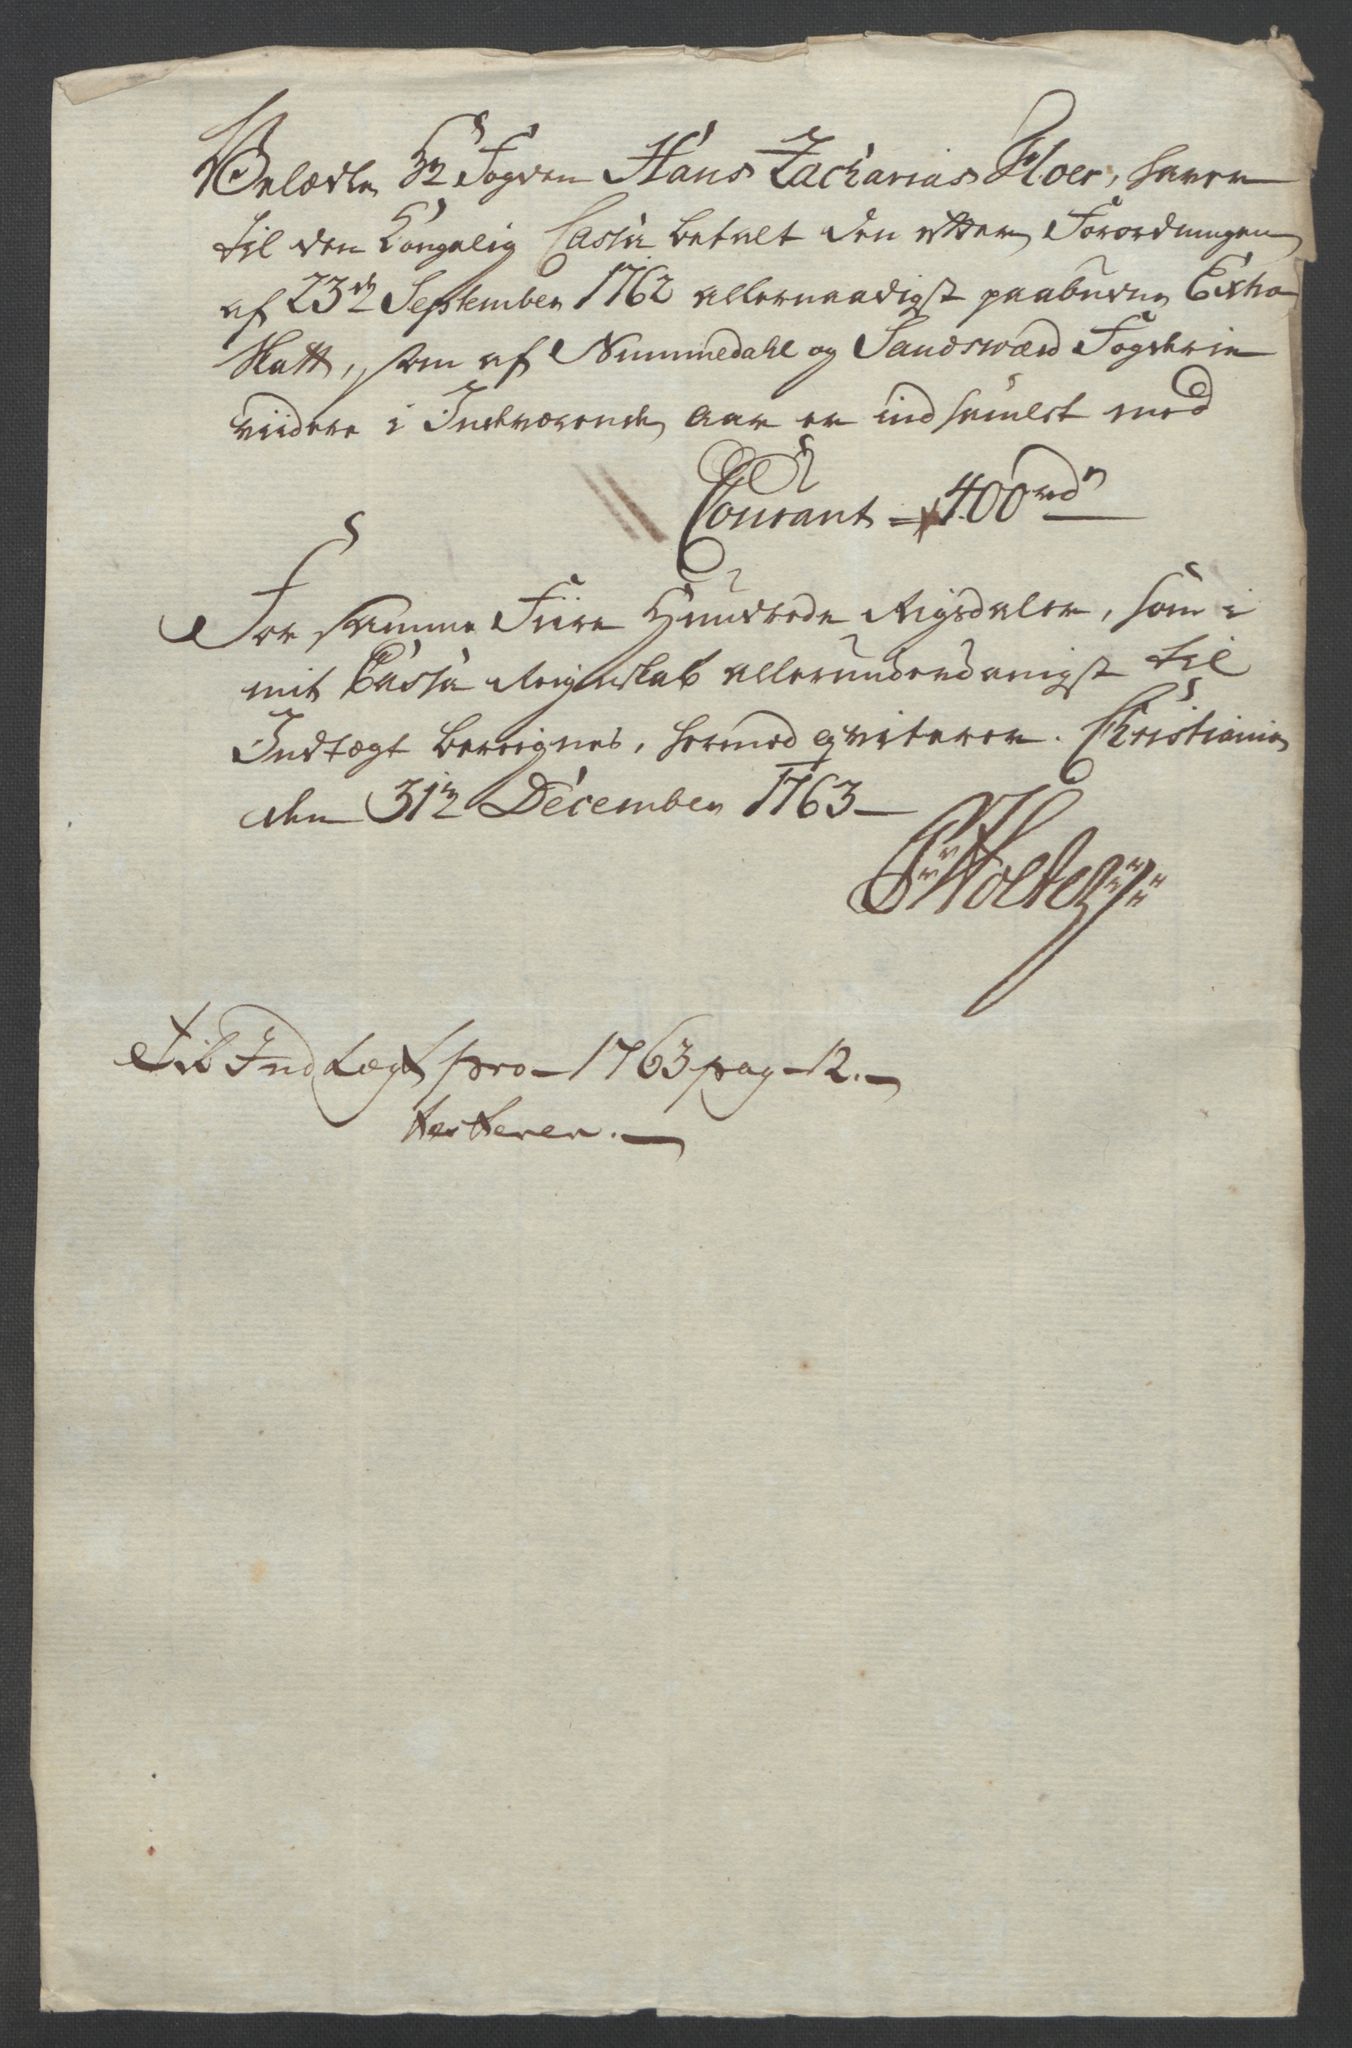 Velædle Hr Fogden Hans Zacharias Floer, haver
til den Kongelig Cassa betalt den efter Forordningen
af 23de September 1762 allernaadigst paabudne Extra
Skatt, som af Nummedahl og Sandsværd Fogderie
viidere i Indeværende aar er indsamlet med
Courant = 400 rdr
For samme Fiire Hundrede Rigsdaler, som i
mit Cassa Reignskab allerunderdanigst til
Indtægt bereignes, hermed qviterer. Christiania
den 31te December 1763 —
Holter
Til Indtægt pro – 1763 pag – 12. –
testerer. —